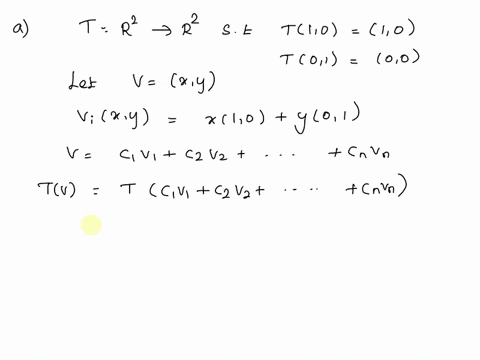 a) T: R² → R² s.t T(1,0) = (1,0)
T(0,1) = (0,0)
Let V = (x,y)
Vi(x,y) = x(1,0) + y(0,1)
V = C₁V₁ + C₂V₂ + ... ... + CnVn
T(V) = T (C₁V₁ + C₂V₂ + ... ... + CnVn)